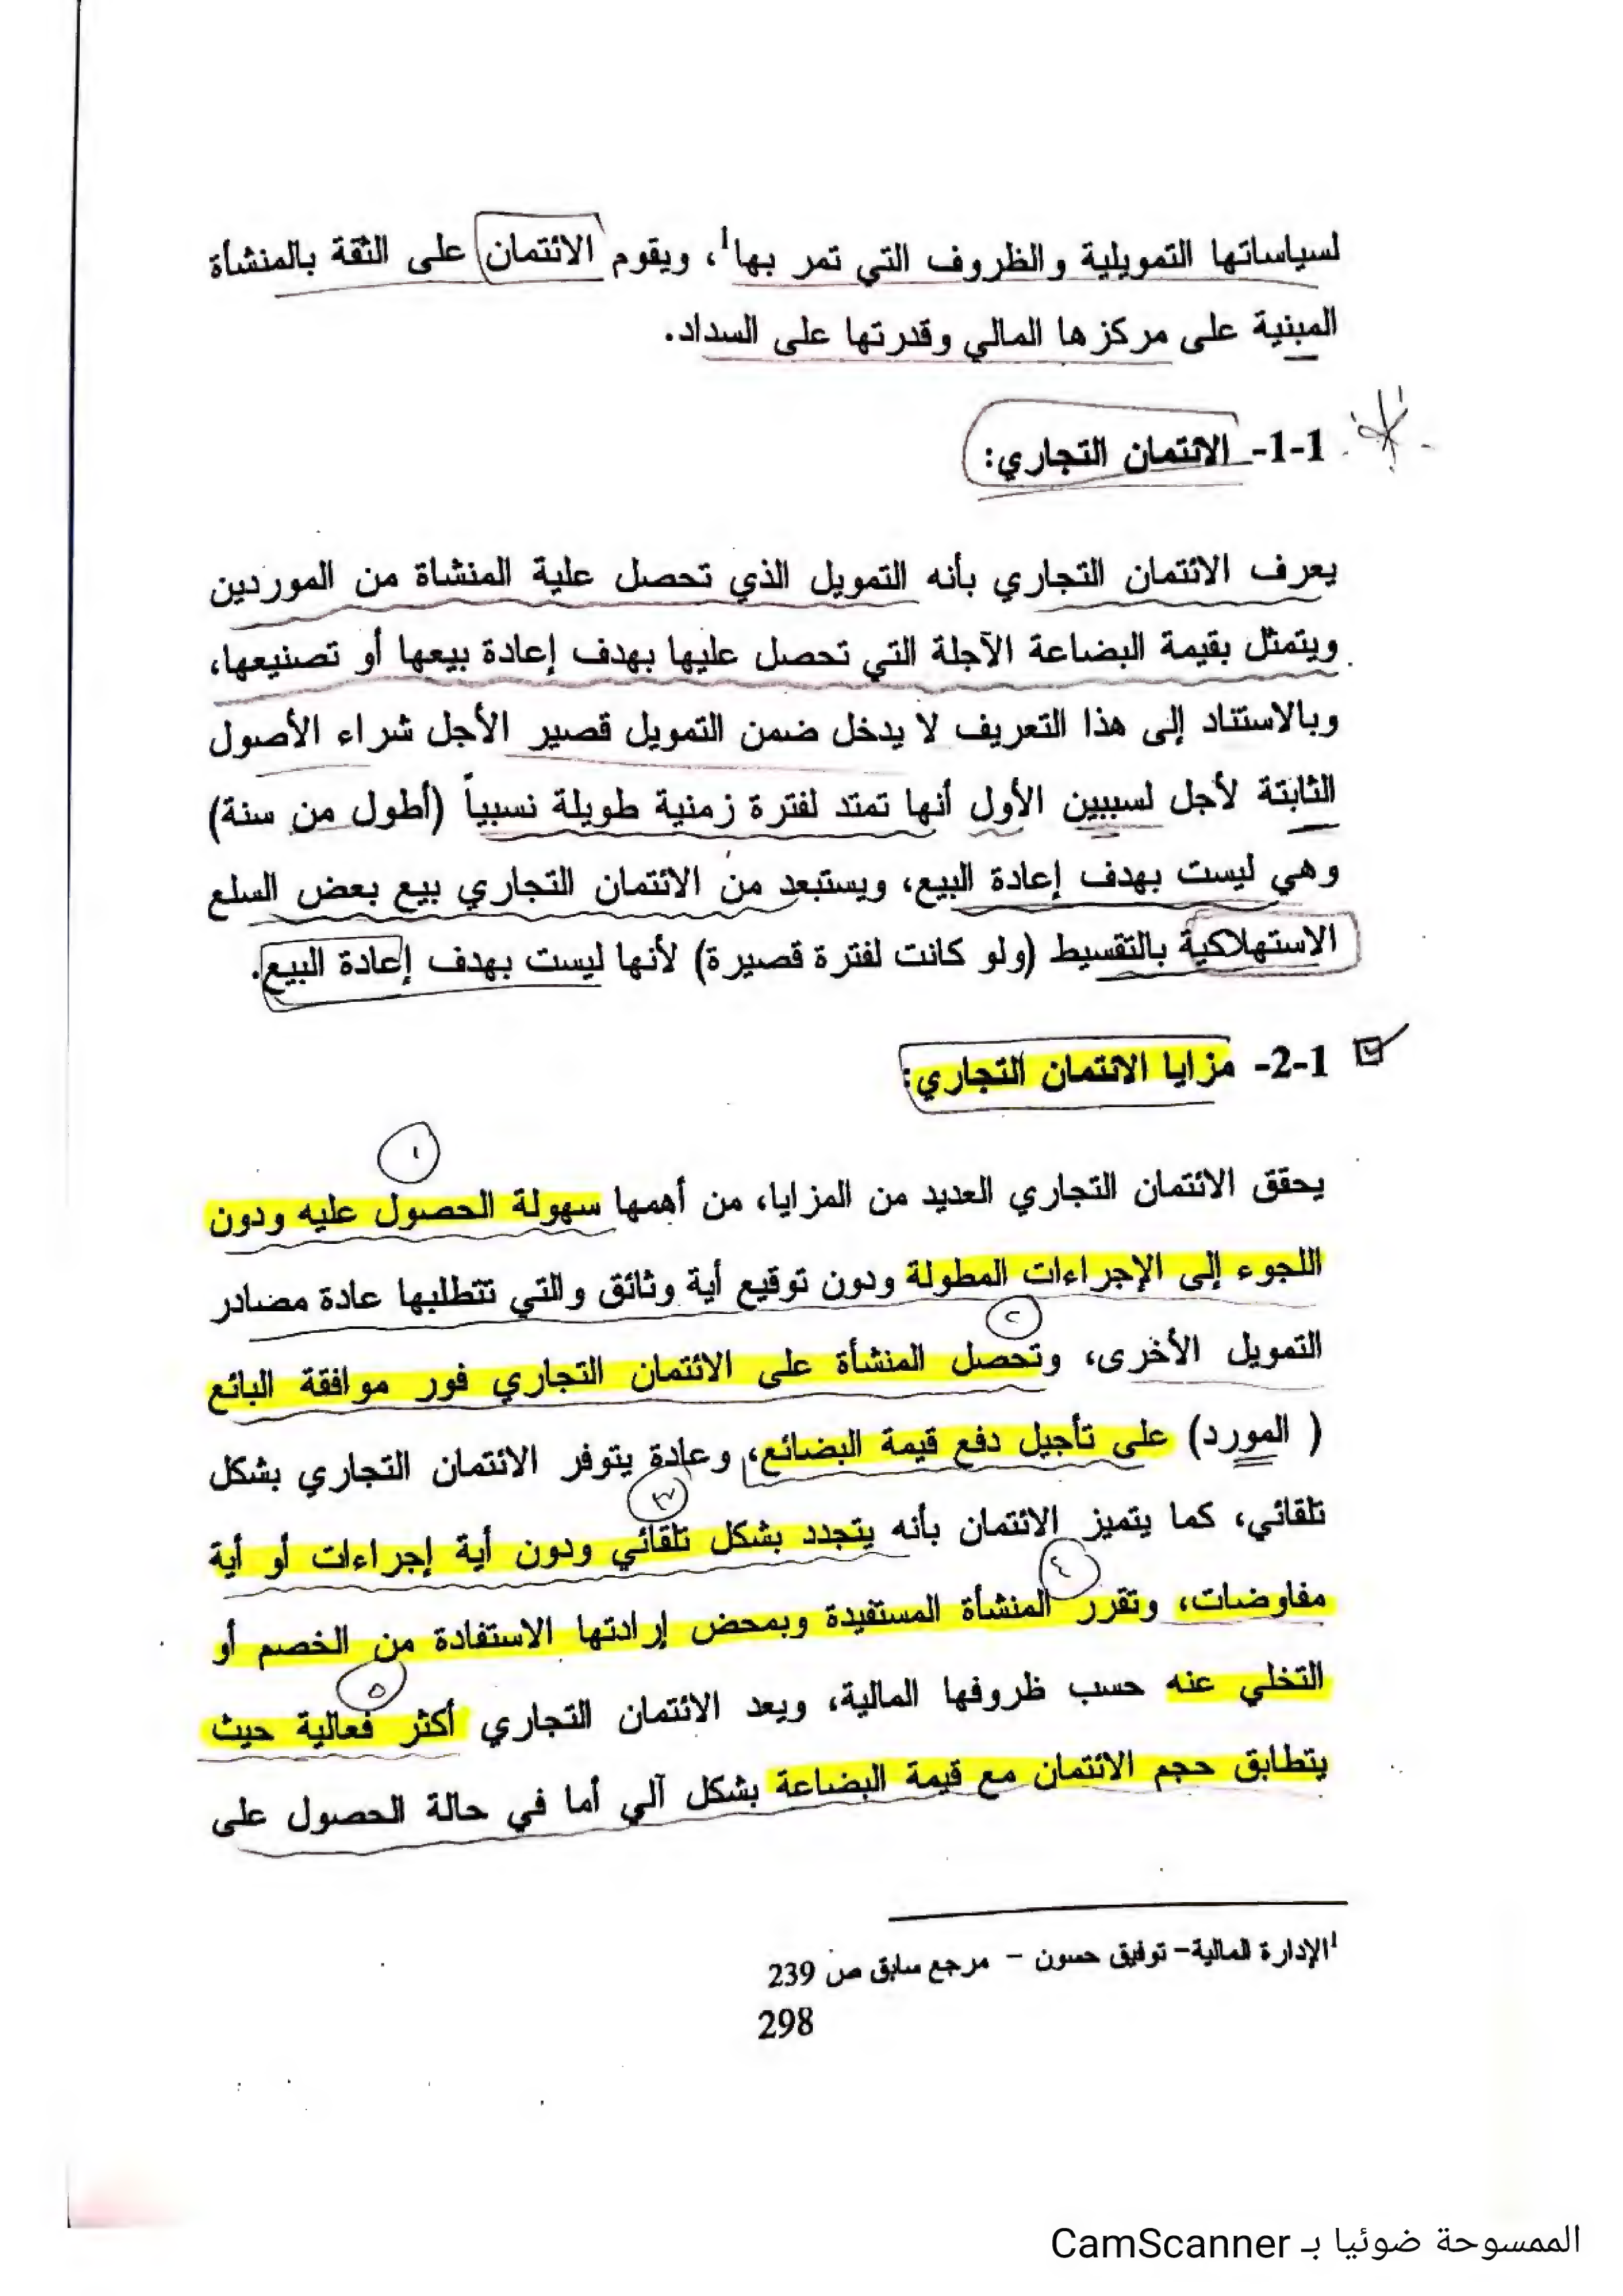 لسياساتها التمويلية والظروف التي تمر بها¹، ويقوم الائتمان على الثقة بالمنشأة
المبنية على مركزها المالي وقدرتها على السداد.
1-1- الائتمان التجاري:
يعرف الائتمان التجاري بأنه التمويل الذي تحصل علية المنشاة من الموردين
ويتمثل بقيمة البضاعة الآجلة التي تحصل عليها بهدف إعادة بيعها أو تصنيعها،
وبالاستناد إلى هذا التعريف لا يدخل ضمن التمويل قصير الأجل شراء الأصول
الثابتة لأجل لسببين الأول أنها تمتد لفترة زمنية طويلة نسبياً (أطول من سنة)
وهي ليست بهدف إعادة البيع، ويستبعد من الائتمان التجاري بيع بعض السلع
الاستهلاكية بالتقسيط (ولو كانت لفترة قصيرة) لأنها ليست بهدف إعادة البيع.
2-1- مزايا الائتمان التجاري:
١
يحقق الائتمان التجاري العديد من المزايا، من أهمها سهولة الحصول عليه ودون
اللجوء إلى الإجراءات المطولة ودون توقيع أية وثائق والتي تتطلبها عادة مصادر
٢
التمويل الأخرى، وتحصل المنشأة على الائتمان التجاري فور موافقة البائع
( المورد) على تأجيل دفع قيمة البضائع، وعادة يتوفر الائتمان التجاري بشكل
٣
تلقائي، كما يتميز الائتمان بأنه يتجدد بشكل تلقائي ودون أية إجراءات أو أية
٤
مفاوضات، وتقرر المنشأة المستفيدة وبمحض إرادتها الاستفادة من الخصم أو
٥
التخلي عنه حسب ظروفها المالية، ويعد الائتمان التجاري أكثر فعالية حيث
يتطابق حجم الائتمان مع قيمة البضاعة بشكل آلي أما في حالة الحصول على
¹الإدارة المالية- توفيق حسون - مرجع سابق ص 239
298
الممسوحة ضوئيا بـ CamScanner